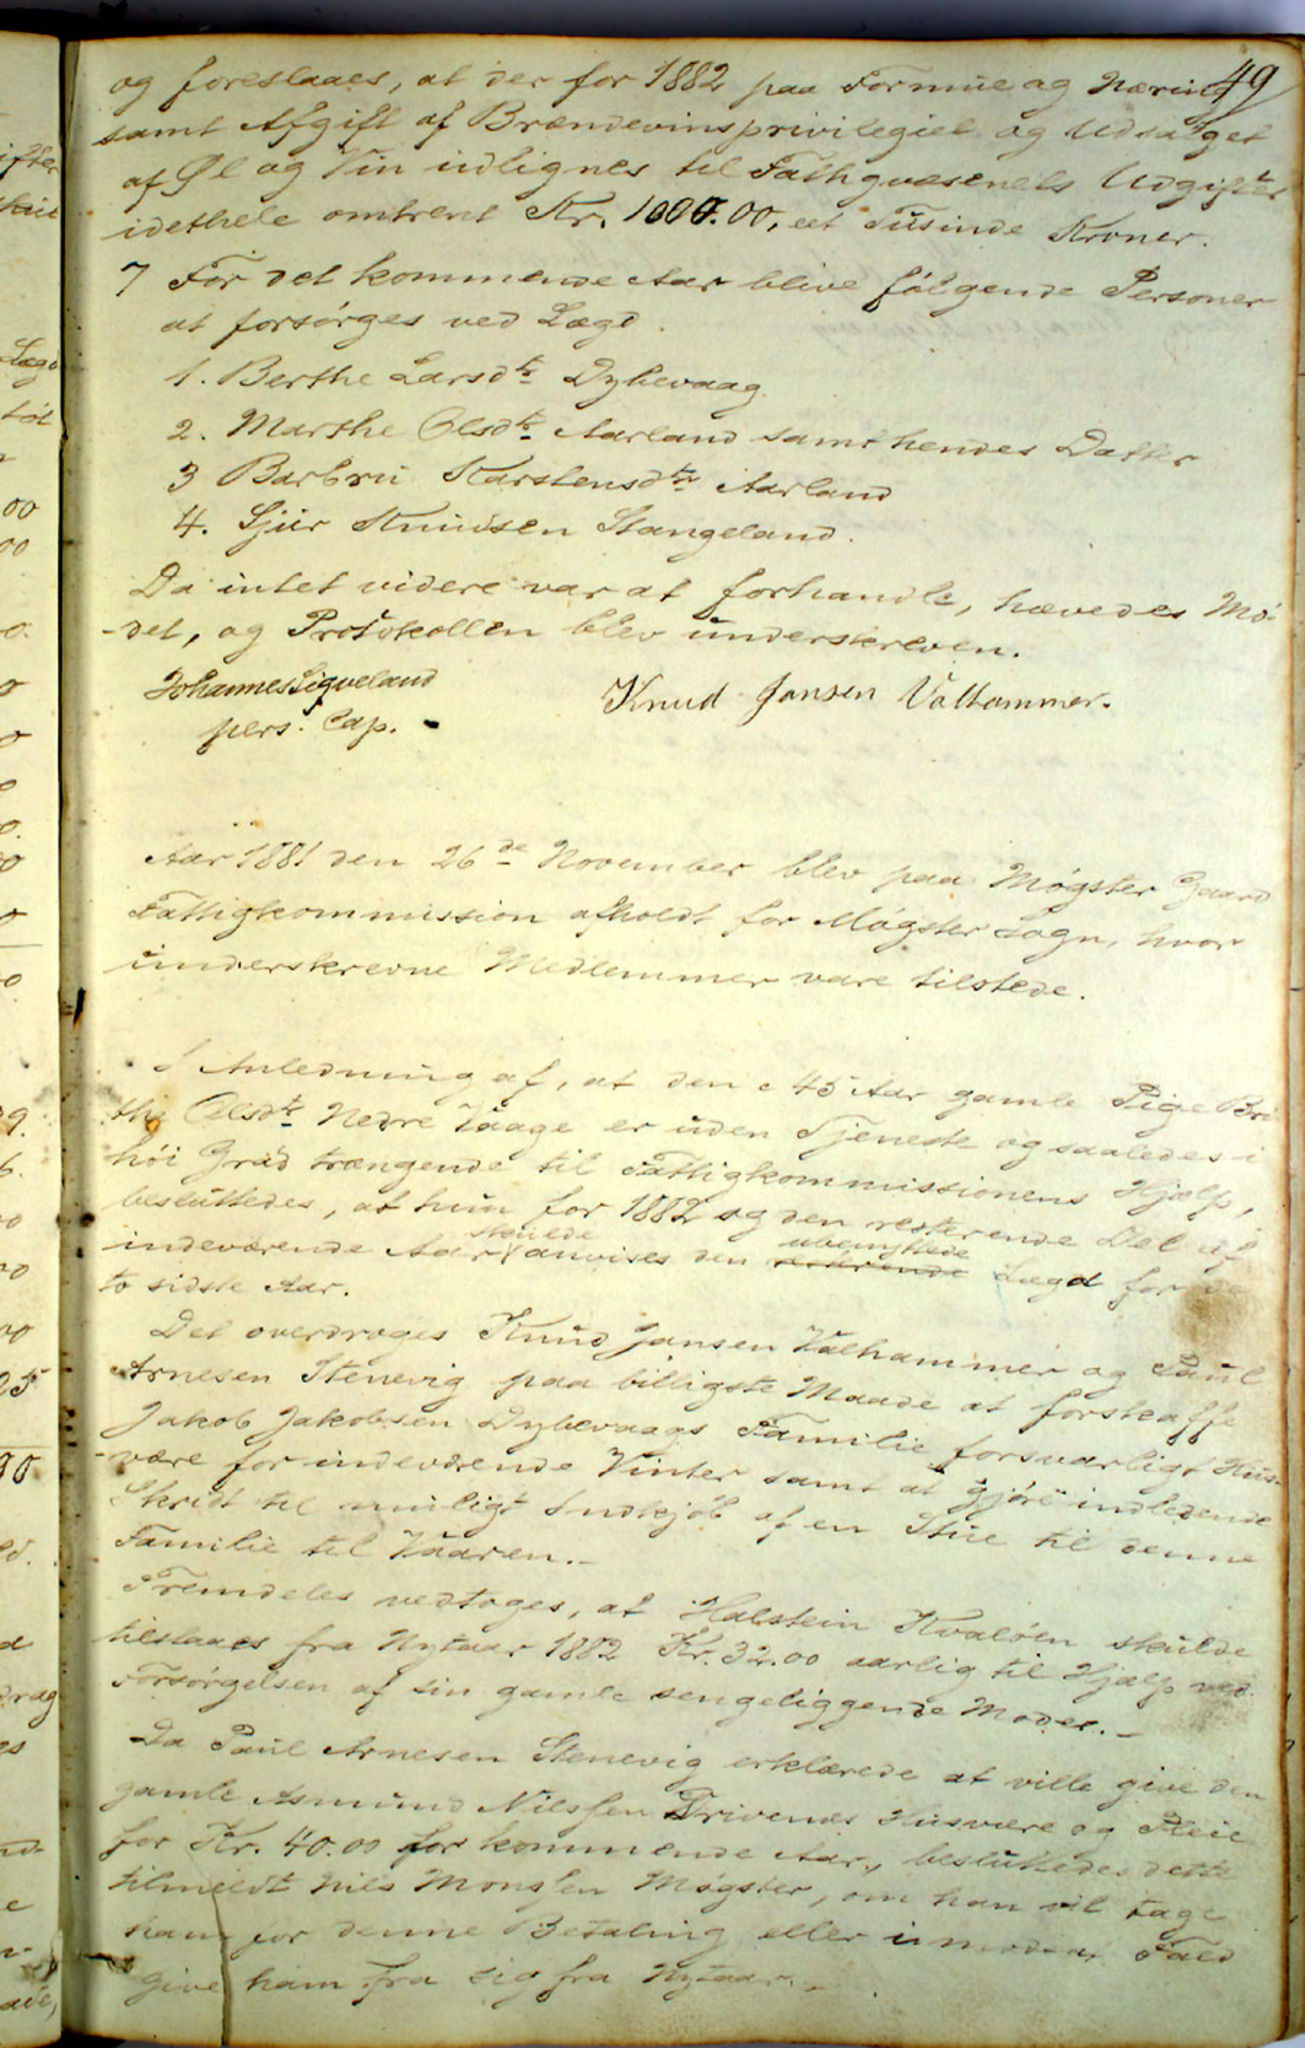 49
og foreslaaes, at der for 1882 paa Formue og Næring
samt Afgift af Brændevinsprivilegiet og Udsalget
af Øl og Vin udlignes til Fathgvæsenets Udgifter
idethele omtrent Kr. 1000.00, eet Tusinde Kroner.
7 For det kommende Aar blive følgende Personer
at forsørges ved Lægd.
1. Berthe Larsdtr Dybevaag.
2. Marthe Olsdtr Aarland samt hendes Datter
3 Barbru Karstensdtr Aarland
4. Sjur Knudsen Stangeland.
Da intet videre var at forhandle, hævedes Mø-
-det, og Protokollen blev underskreven.
Johannes Sigveland Knud Jansen Valhammer.
pers. Cap.
Aar 1881 den 26de November blev paa Møgster Gaard
Fattigkommission afholdt for Møgster Sogn, hvor
underskrevne Medlemmer vare tilstede.
I Anledning af, at den c 45 Aar gamle Pige Bri
the Olsdtr Nedre Vaage er uden Tjeneste og saaledes i
høi Grad trængende til Fattigkommissionens Hjælp,
besluttedes, at hun for 1882 og den resterende Del af
indeværende Aar skulde anvises den ubenyttede Lægd for de
to sidste Aar.
Det overdroges Knud Jansen Valhammer og Paul
Arnesen Stenevig paa billigste Maade at forskaffe
Jakob Jakobsen Dybevaags Familie forsvarligt Hus-
-være for indeværende Vinter samt at gjøre indledende
Skridt til muligt Indkjøb af en Stue til denne
Familie til Vaaren.-
Fremdeles vedtoges, at Halstein Kvaløen skulde
tilstaaes fra Nytaar 1882 Kr. 32.00 aarlig til Hjælp ved
Forsørgelsen af sin gamle sengeliggende Moder.-
Da Paul Arnesen Stenevig erklærede at ville give den
gamle Asmund Nilssen Drivenæs Husvære og Pleie
for Kr. 40.00 for kommende Aar, besluttedes dette
tilmeldt Nils Monssen Møgster, om han vil tage
ham for denne Betaling eller i modsat Fald
give ham fra sig fra Nytaar.-